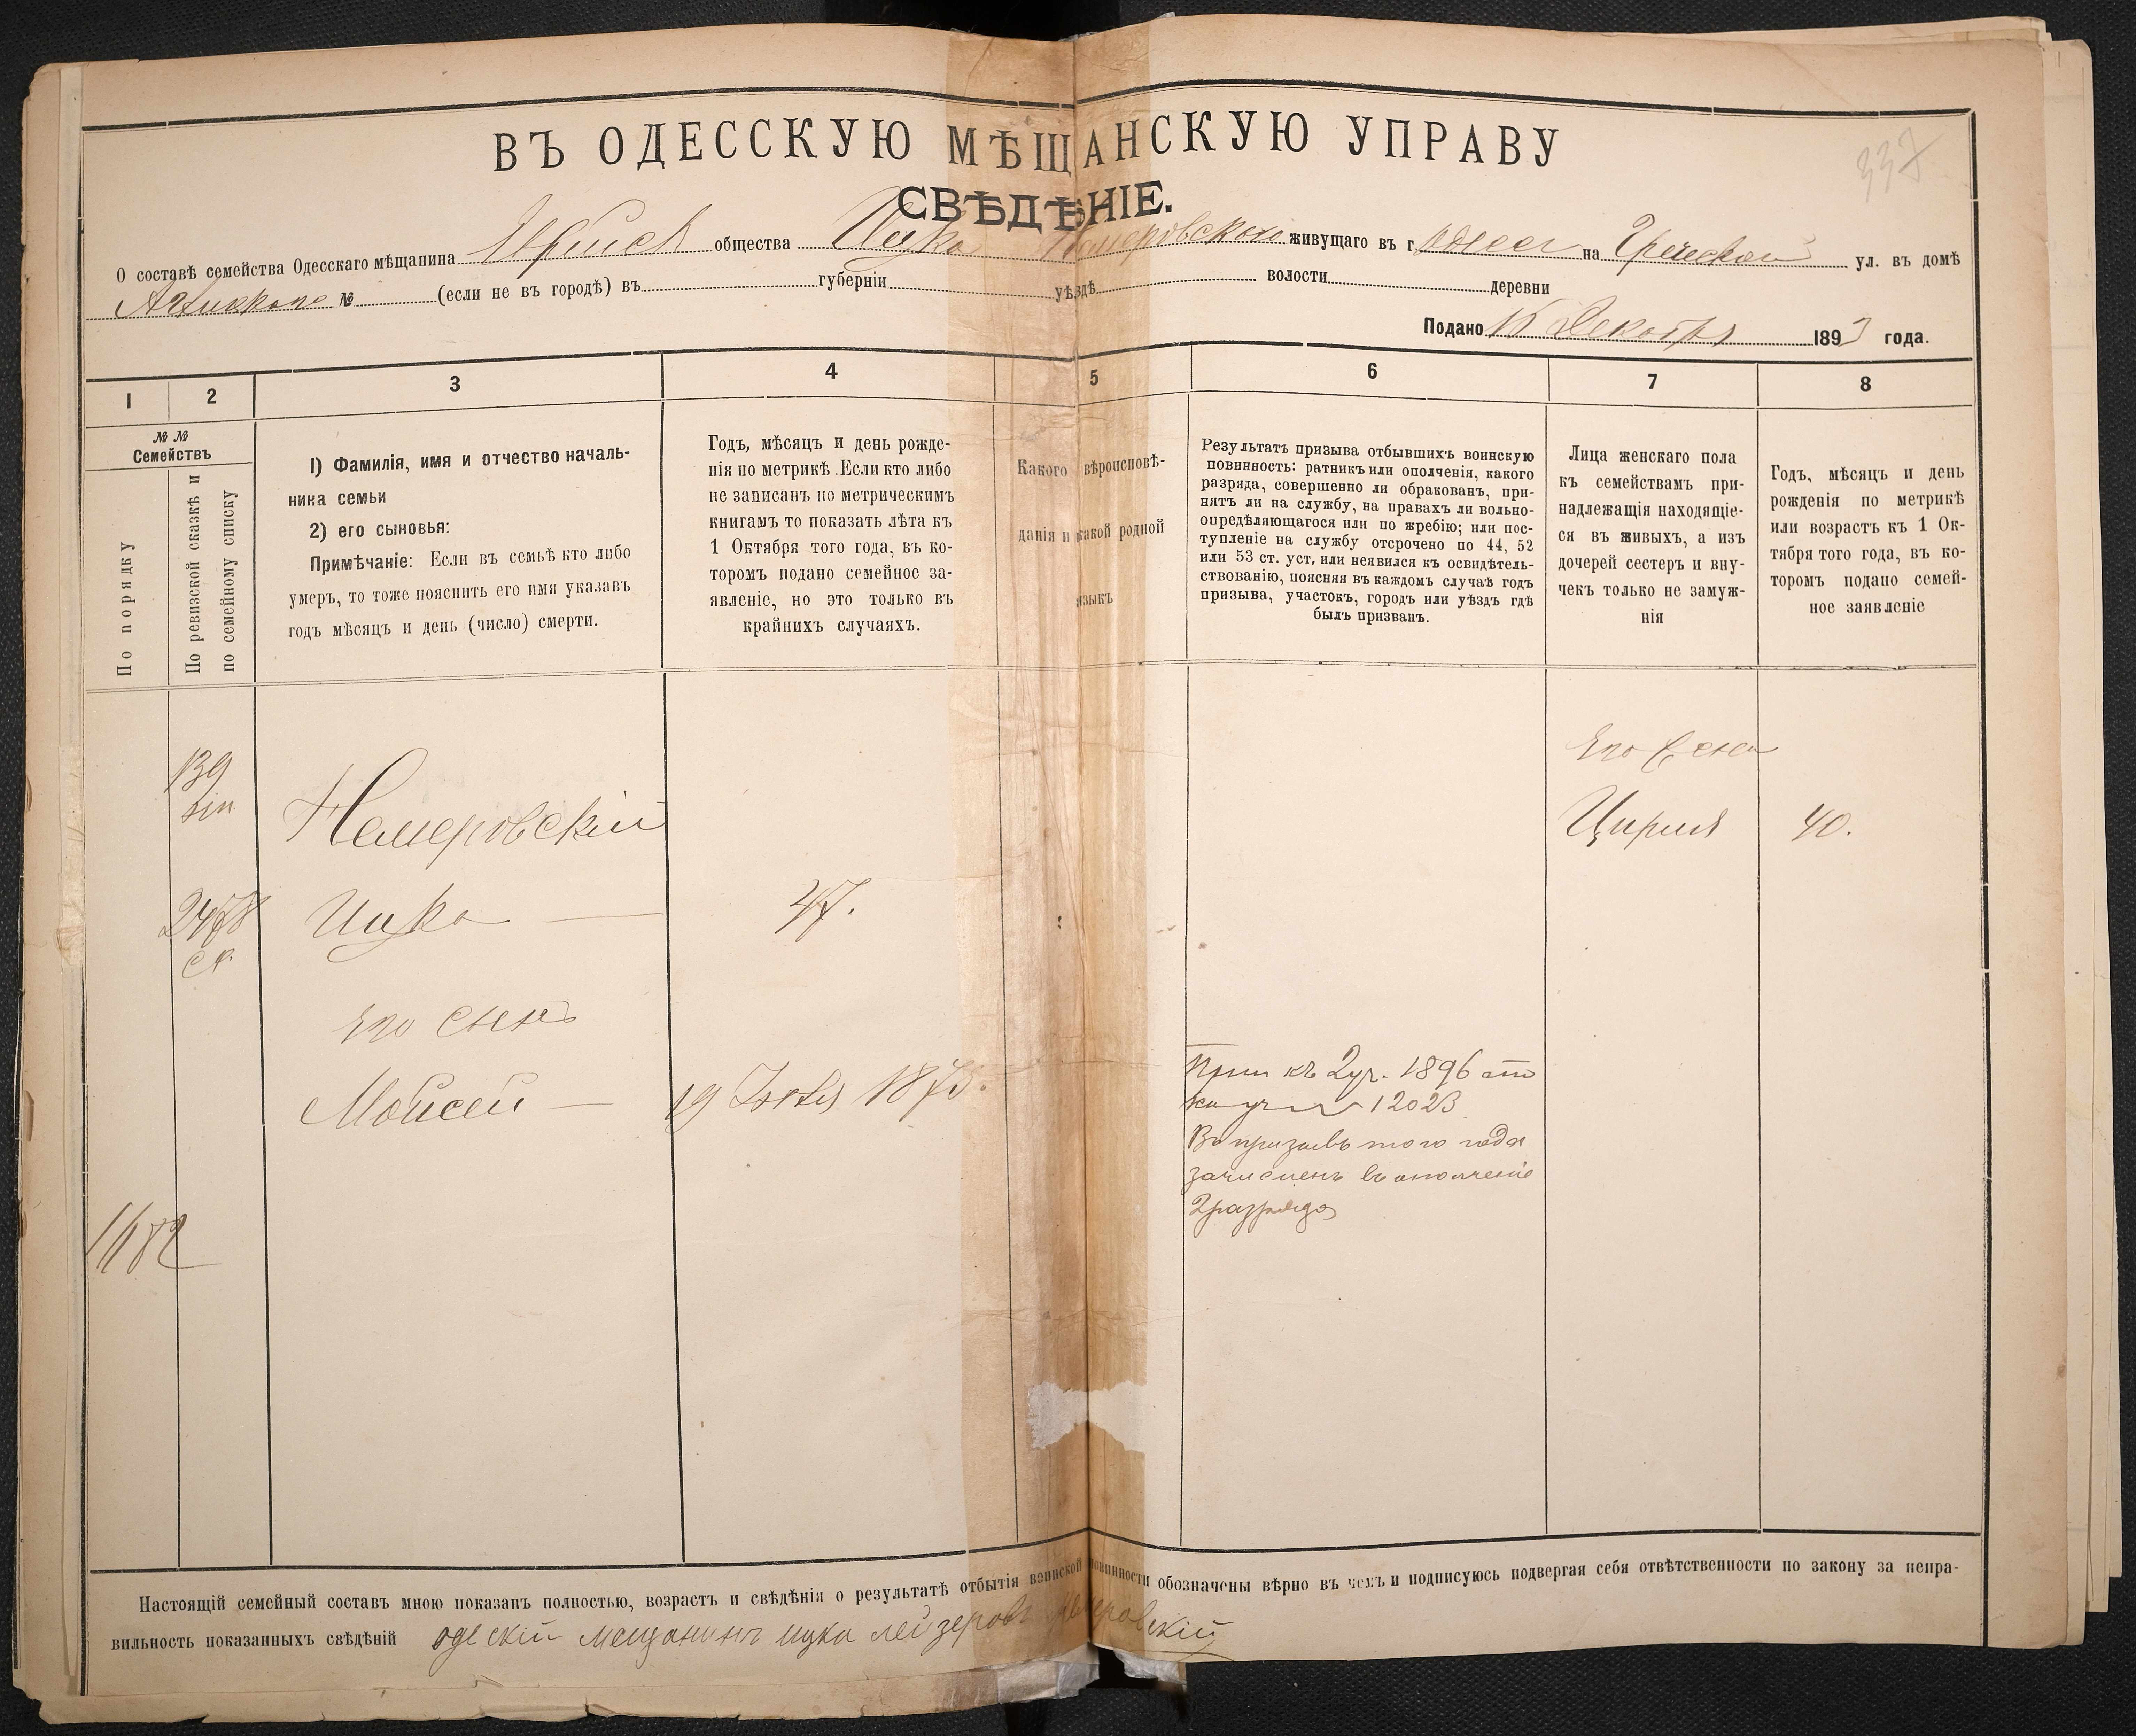 337
ВЪ ОДЕССКУЮ МѢЩАНСКУЮ УПРАВУ
СВѢДѢНІЕ.
О составѣ семейства Одесскаго мѣщанина общества Ицко Немеровскаго живущаго въ г. Одессѣ на Греческой ул. въ домѣ
№ (если не въ городѣ) въ губерніи уѣздѣ волости деревни
Подано 15 Декабря 1893 года.
1 2 3 4 5 6 7 8
№ №
Семействъ
По порядку
По ревизской сказкѣ и
по семейному списку
1) Фамилія, имя и отчество началь-
ника семьи
2) его сыновья:
Примѣчаніе: Если въ семьѣ кто либо
умеръ, то тоже пояснить его имя указавъ
годъ мѣсяцъ и день (число) смерти.
Годъ, мѣсяцъ и день рожде-
нія по метрикѣ. Если кто либо
не записанъ по метрическимъ
книгамъ то показать лѣта къ
1 Октября того года, въ ко-
торомъ подано семейное за-
явленіе, но это только въ
крайнихъ случаяхъ.
Какого вѣроисповѣ-
данія и какой родной
языкъ
Результатъ призыва отбывшихъ воинскую
повинность: ратникъ или ополченія, какого
разряда, совершенно ли обракованъ, при-
нятъ ли на службу, на правахъ ли вольно-
опредѣляющагося или по жребію; или пос-
тупленіе на службу отсрочено по 44, 52
или 53 ст. уст, или неявился къ освидѣтель-
ствованію, поясняя въ каждомъ случаѣ годъ
призыва, участокъ, городъ или уѣздъ гдѣ
былъ призванъ.
Лица женскаго пола
къ семействамъ при-
надлежащія находящіе-
ся въ живыхъ, а изъ
дочерей сестеръ и вну-
чекъ только не замуж-
нія
Годъ, мѣсяцъ и день
рожденія по метрикѣ
или возрастъ къ 1 Ок-
тября того года, въ ко-
торомъ подано семей-
ное заявленіе
Его жена
139
Немеровскій
Цирля 40.
Ицко 47.
его сынъ
Моисей 19 1875.
Прип къ 2 уч. 1896
12023
Въ призывъ того года
зачисленъ въ ополченіе
2 разряда
1682
Настоящій семейный составъ мною показанъ полностью, возрастъ и свѣдѣнія о результатѣ отбытія воинской повинности обозначены вѣрно въ чемъ и подписуюсь подвергая себя отвѣтственности по закону за непра-
вильность показанныхъ свѣдѣній одескій мещанинъ ицко лейзеровъ немеровскій